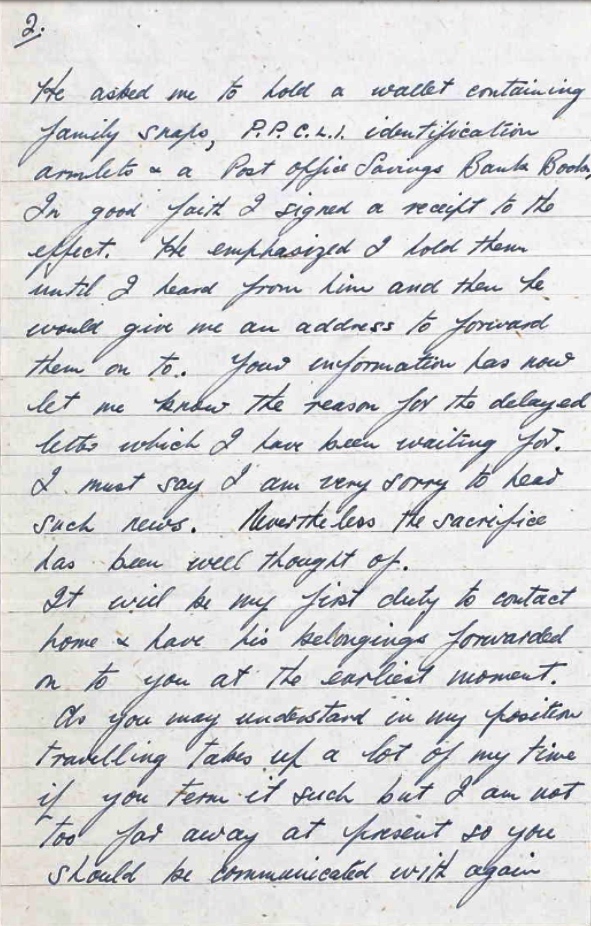 2.
He asked me to hold a wallet containing
family snaps, P.P.C.L.I. identification
armlets & a Post office Savings Bank Book,
In good faith I signed a receipt to the
effect. He emphasized I hold them
until I heard from him and then he
would give me an address to forward
them on to. Your information has now
let me know the reason for the delayed
letter which I have been waiting for.
I must say I am very sorry to hear
such news. Nevertheless the sacrifice
has been well thought of.
It will be my first duty to contact
home & have his belongings forwarded
on to you at the earliest moment.
As you may understand in my position
travelling takes up a lot of my time
if you term it such but I am not
too far away at present so you
should be communicated with again